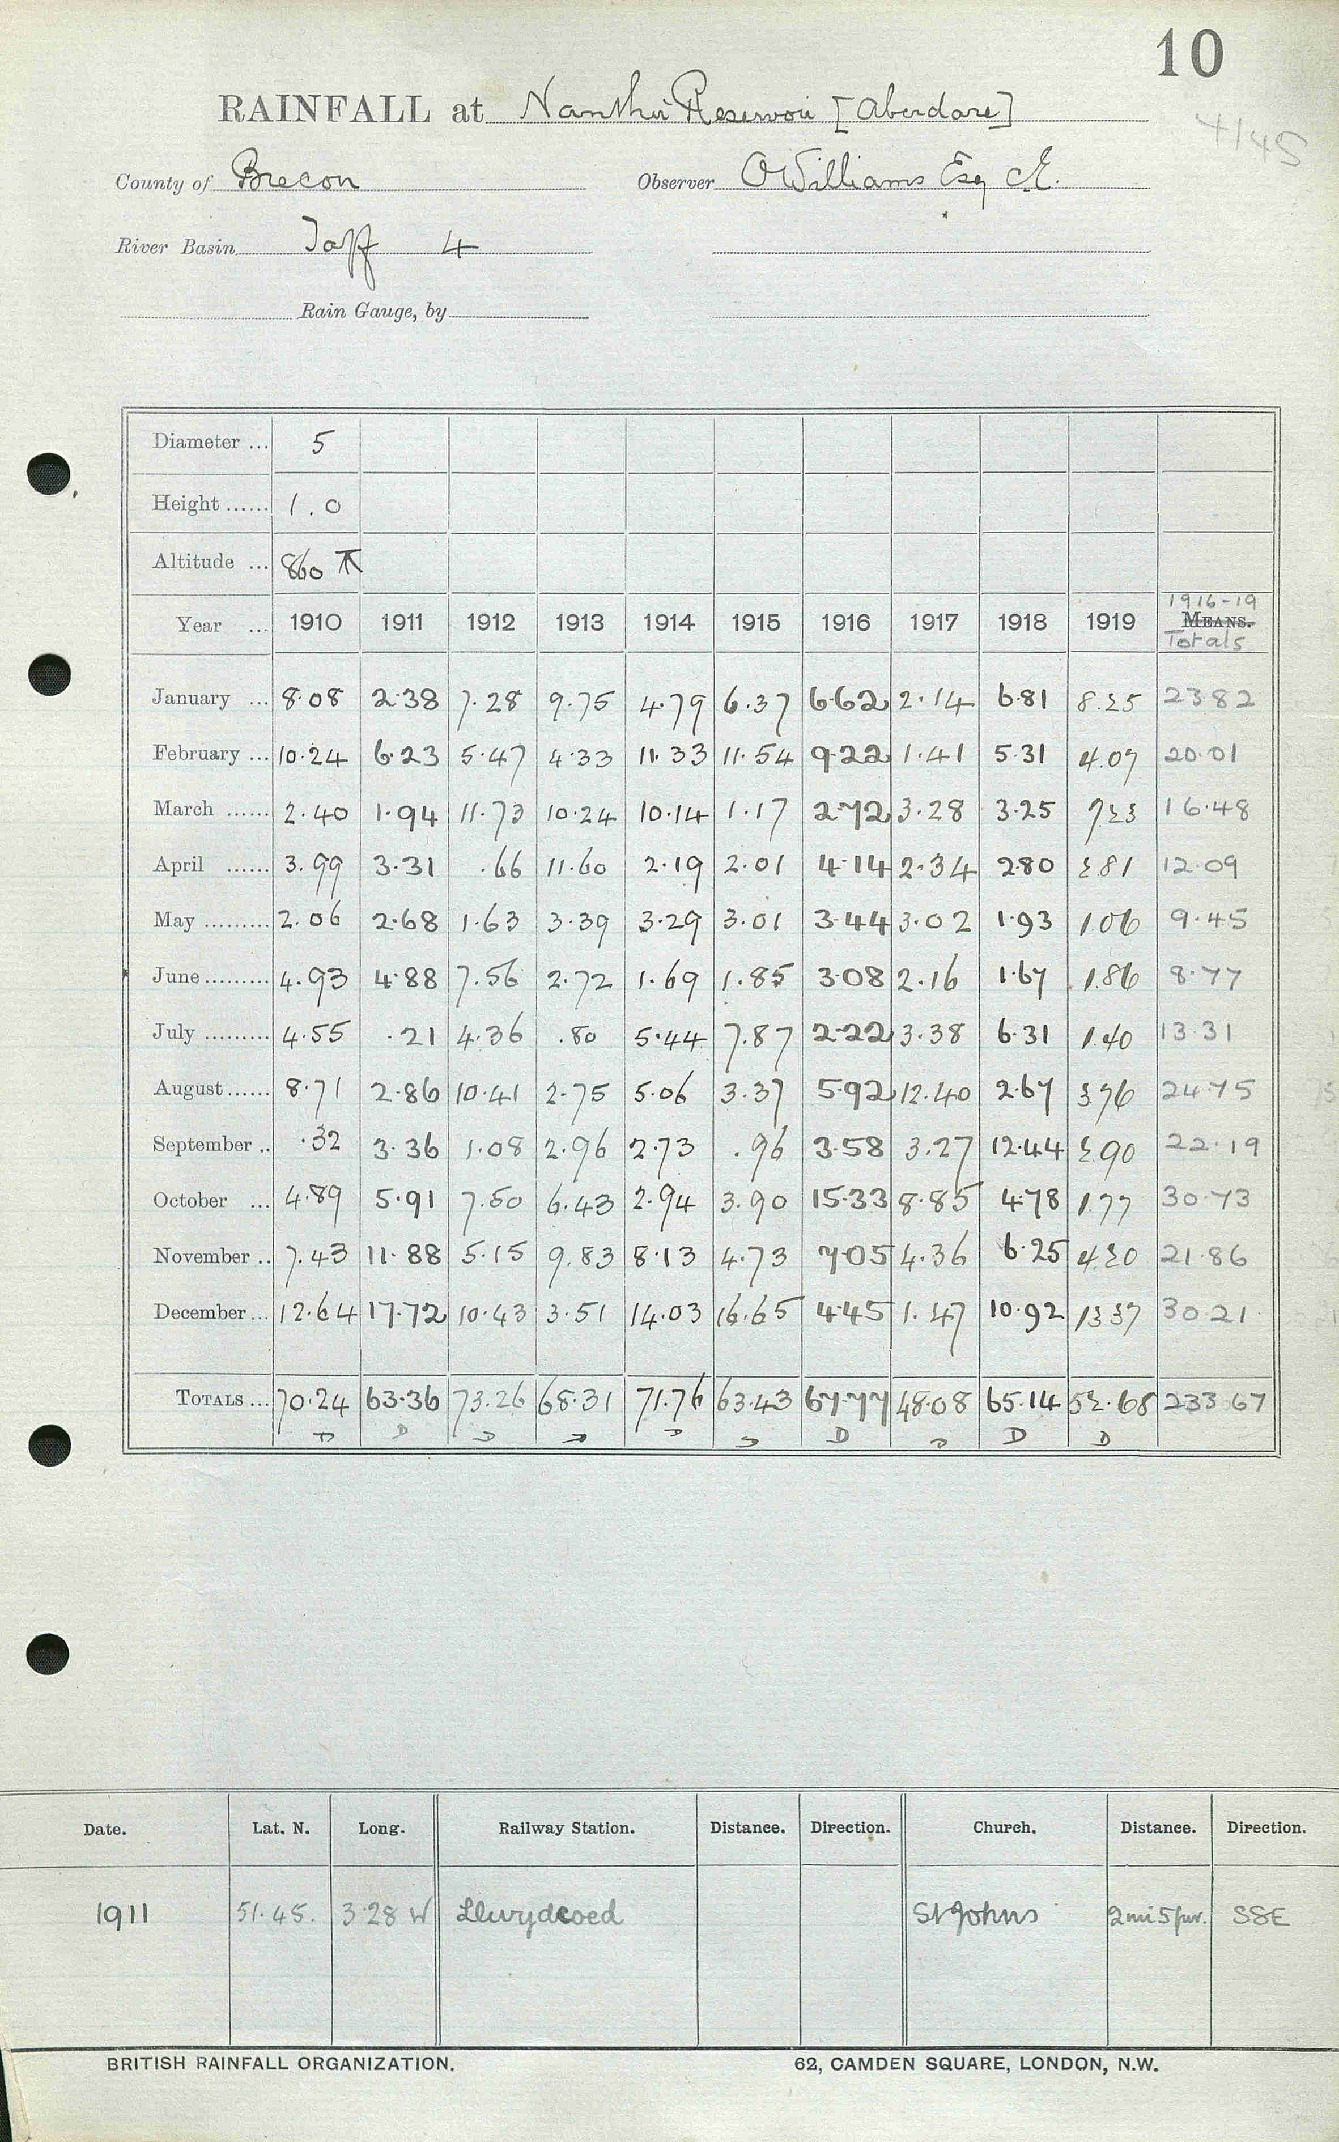 10
RAINFALL at Nanthir Reservoir [Aberdare]
4145
County of Brecon Observer O Williams Esq C.E.
River Basin Taff 4
Rain Gauge, by
Diameter ... 5
Height ...... 1.0
Altitude ... 860
1916-19
Year ... 1910 1911 1912 1913 1914 1915 1916 1917 1918 1919 MEANS.
Totals
January ... 8.08 2.38 7.28 9.75 4.79 6.37 6.62 2.14 6.81 8.25 23.82
February ... 10.24 6.23 5.47 4.33 11.33 11.54 9.22 1.41 5.31 4.07 20.01
March ...... 2.40 1.94 11.73 10.24 10.14 1.17 2.72 3.28 3.25 7.23 16.48
April ...... 3.99 3.31 .66 11.60 2.19 2.01 4.14 2.34 2.80 2.81 12.09
May ......... 2.06 2.68 1.63 3.39 3.29 3.01 3.44 3.02 1.93 1.06 9.45
June ......... 4.93 4.88 7.56 2.72 1.69 1.85 3.08 2.16 1.67 1.86 8.77
July ......... 4.55 .21 4.36 .80 5.44 7.87 2.22 3.38 6.31 1.40 13.31
August ...... 8.71 2.86 10.41 2.75 5.06 3.37 5.92 12.40 2.67 3.76 24.75
September .. .32 3.36 1.08 2.96 2.73 .96 3.58 3.27 12.44 2.90 22.19
October ... 4.89 5.91 7.50 6.43 2.94 3.90 15.33 8.85 4.78 1.77 30.73
November .. 7.43 11.88 5.15 9.83 8.13 4.73 7.05 4.36 6.25 4.20 21.86
December ... 12.64 17.72 10.43 3.51 14.03 16.65 4.45 1.47 10.92 13.37 30.21
TOTALS ... 70.24 63.36 73.26 68.31 71.76 63.43 67.77 48.08 65.14 52.68 233.67
D D D D D D D D D D
Date. Lat. N. Long. Railway Station. Distance. Direction. Church. Distance. Direction.
1911 51.45. 3.28 W Llwydcoed St Johns 2 mi 5 fur. SSE
BRITISH RAINFALL ORGANIZATION. 62, CAMDEN SQUARE, LONDON, N.W.